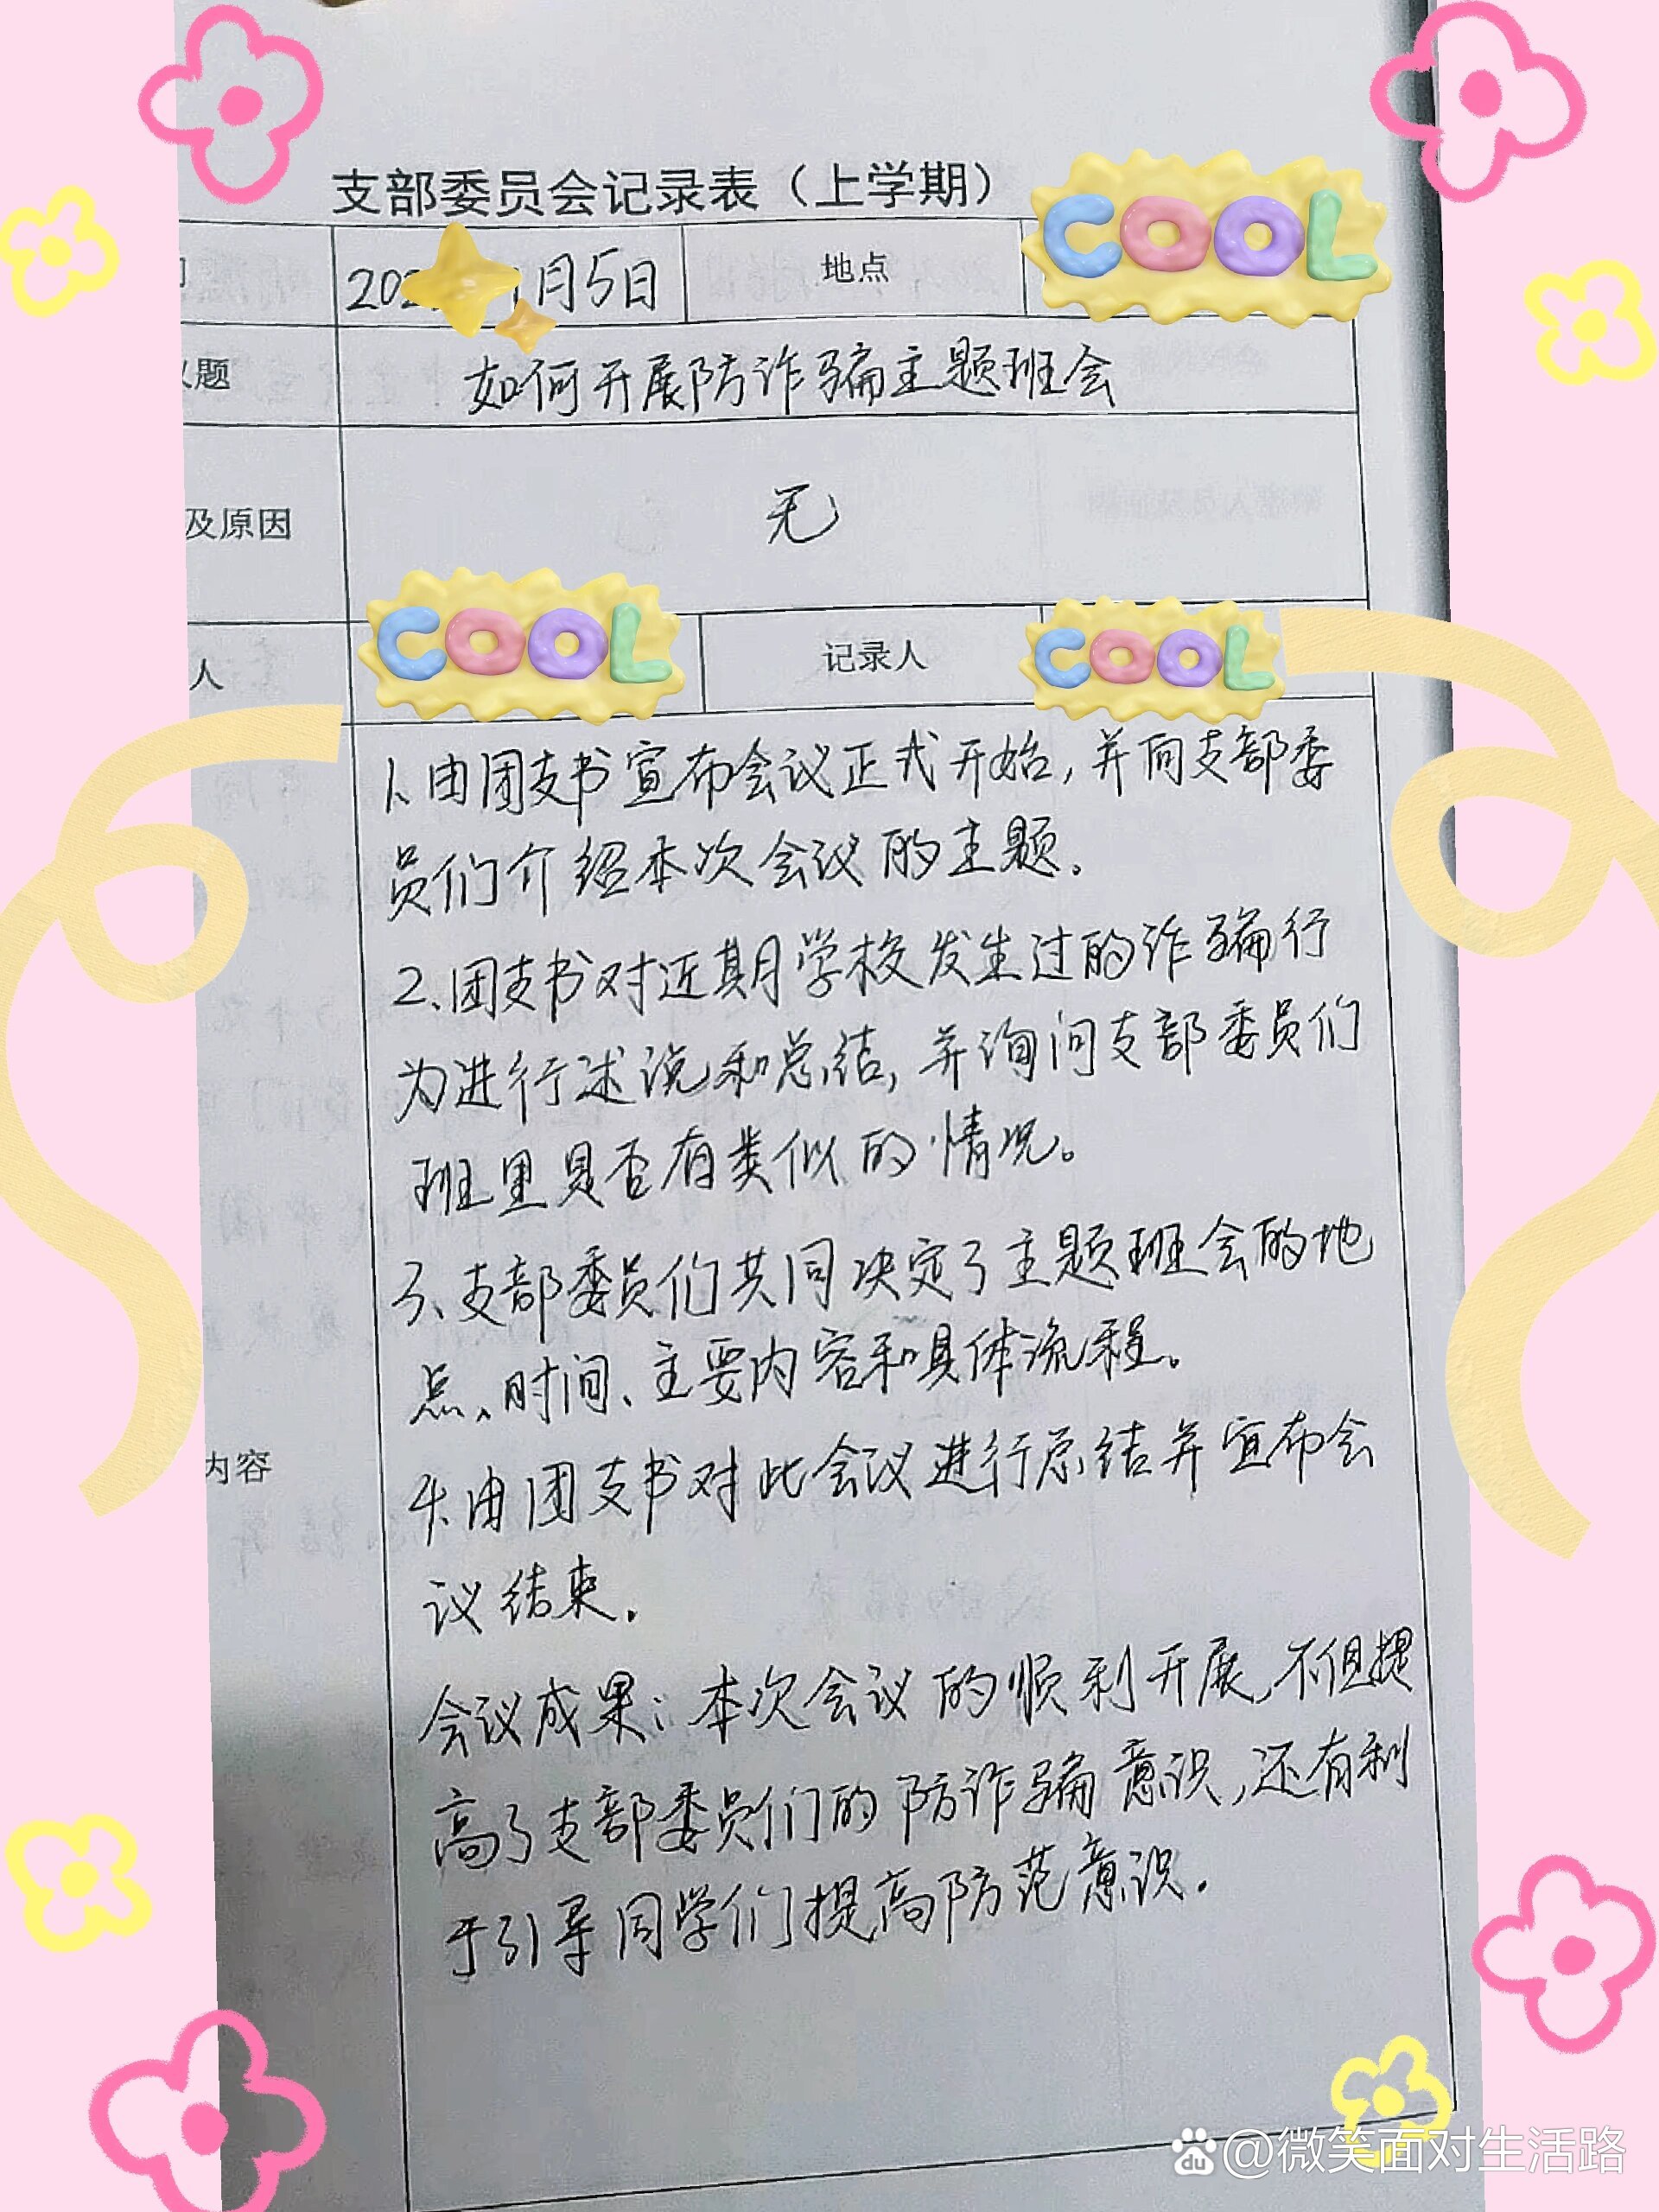 支部委员会记录表（上学期）
202 1月5日 地点 COOL
题 如何开展防诈骗主题班会
及原因 无
人 COOL 记录人 COOL
1、由团支书宣布会议正式开始，并向支部委
员们介绍本次会议的主题。
2、团支书对近期学校发生过的诈骗行
为进行述说和总结，并询问支部委员们
班里是否有类似的情况。
3、支部委员们共同决定了主题班会的地
点、时间、主要内容和具体流程。
内容
4、由团支书对此会议进行总结并宣布会
议结束。
会议成果：本次会议的顺利开展，不但提
高了支部委员们的防诈骗意识，还有利
于引导同学们提高防范意识。
du @微笑面对生活路